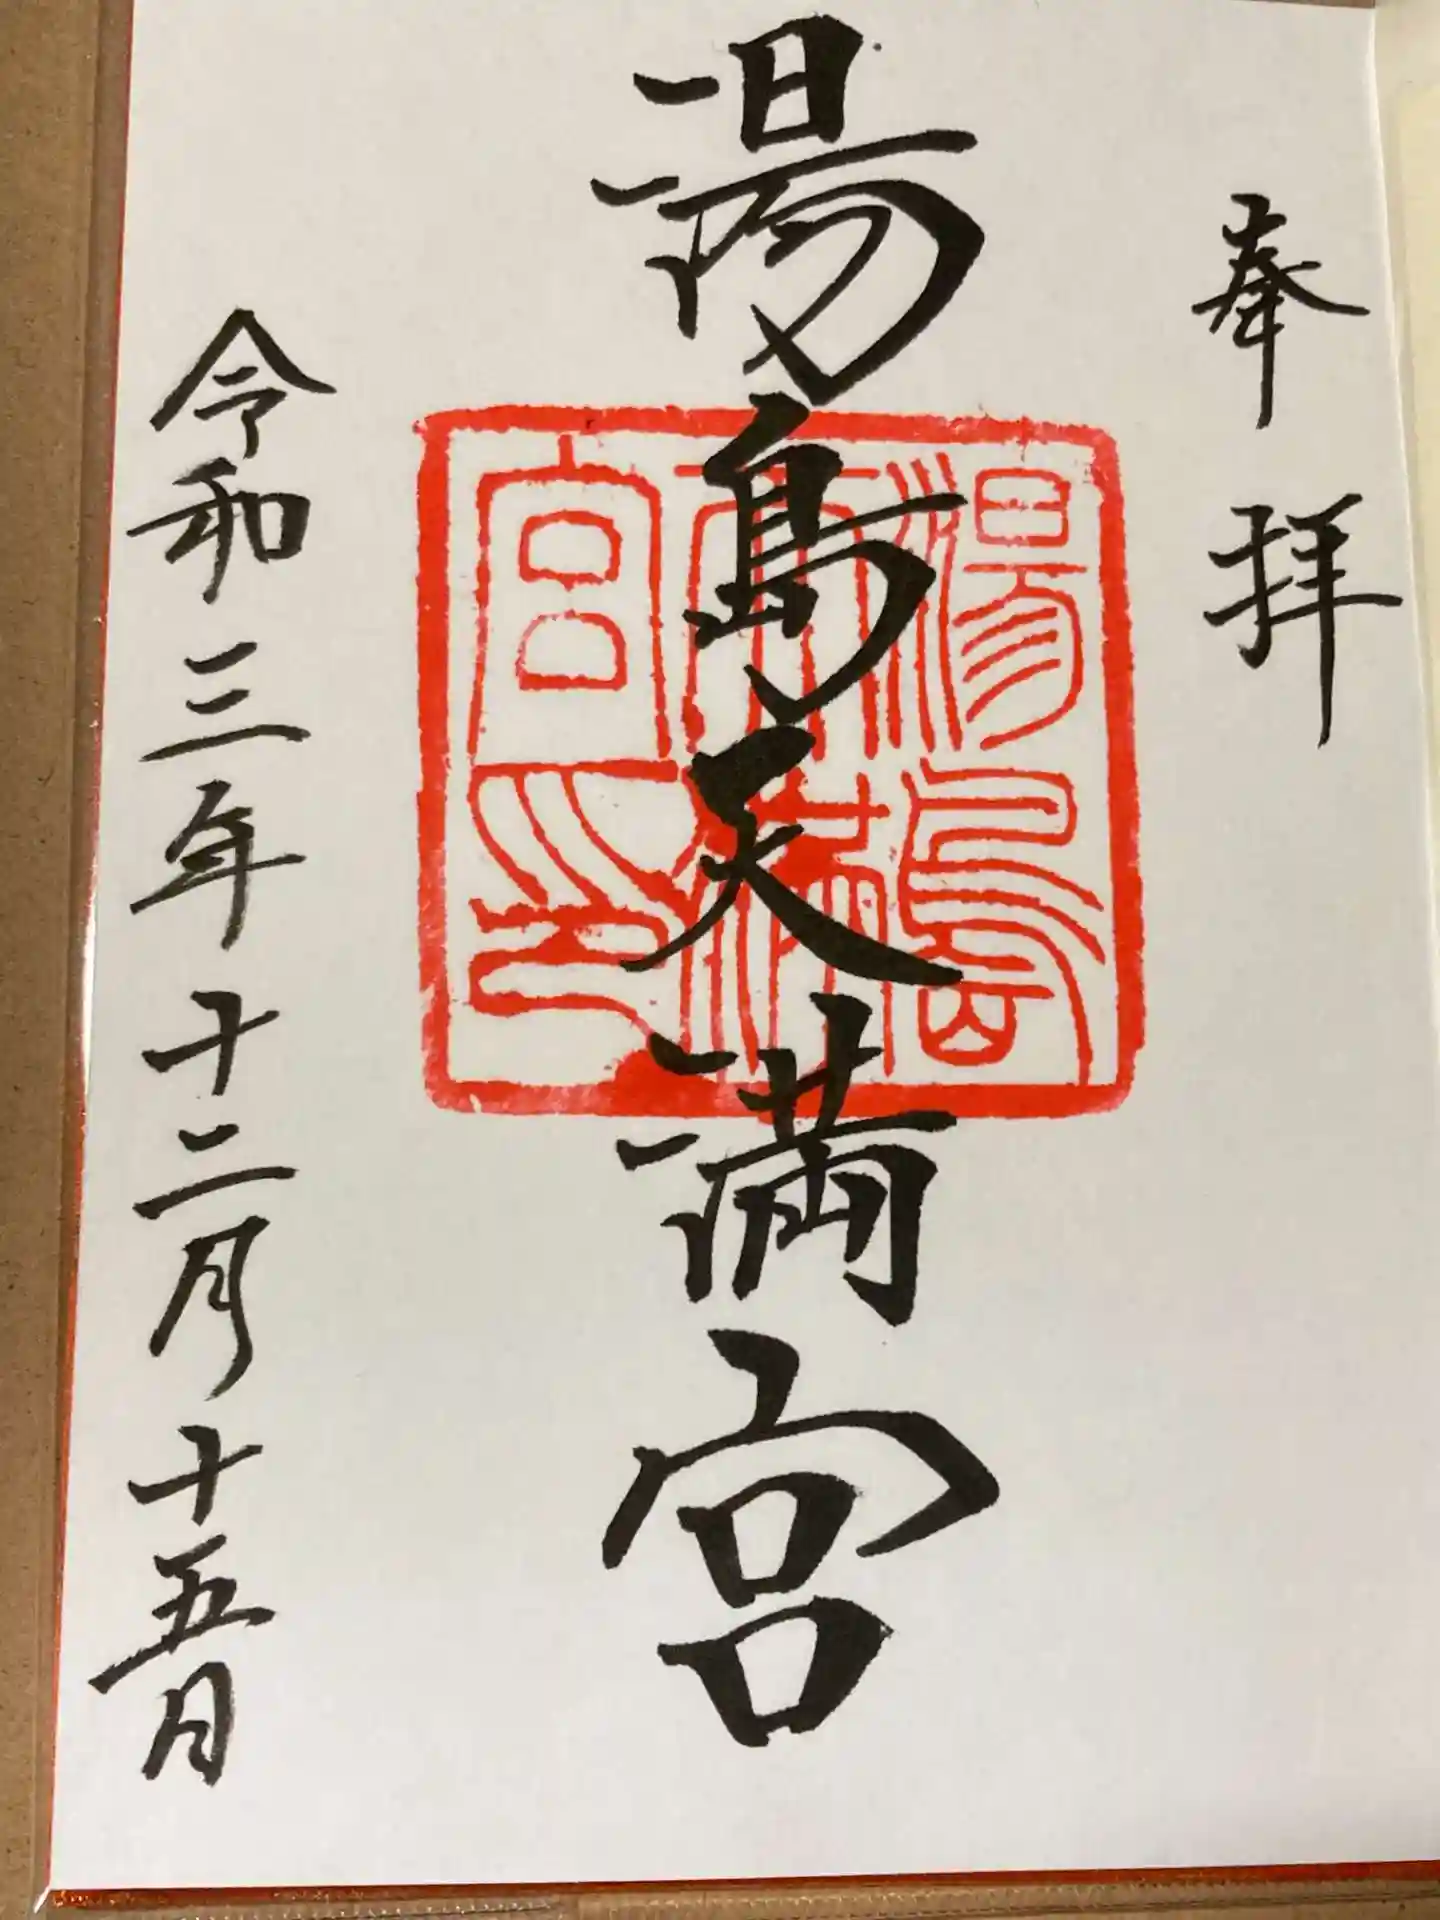 奉拝
湯島天満宮
湯島天満宮印
令和三年十二月十五日